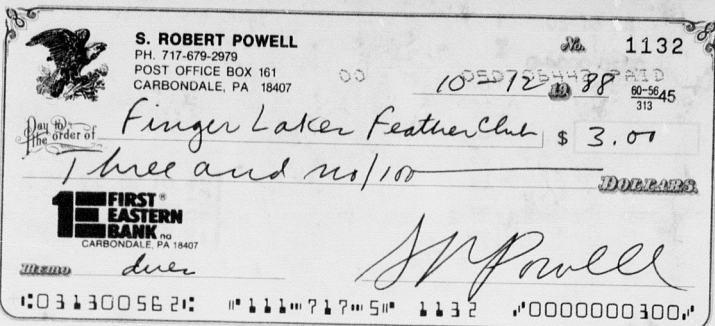 S. ROBERT POWELL
PH. 717-679-2979
POST OFFICE BOX 161
CARBONDALE, PA 18407
No. 1132
10-12 19 88
60-5645
313
PAID
Pay to the order of Finger Lakes Feather Club $ 3.00
Three and no/100 DOLLARS
1E FIRST® EASTERN BANK na
CARBONDALE, PA 18407
MEMO dues
SR Powell
⑆031300562⑆ ⑈111⑉717⑉5⑈ 1132 ⑇0000000300⑇